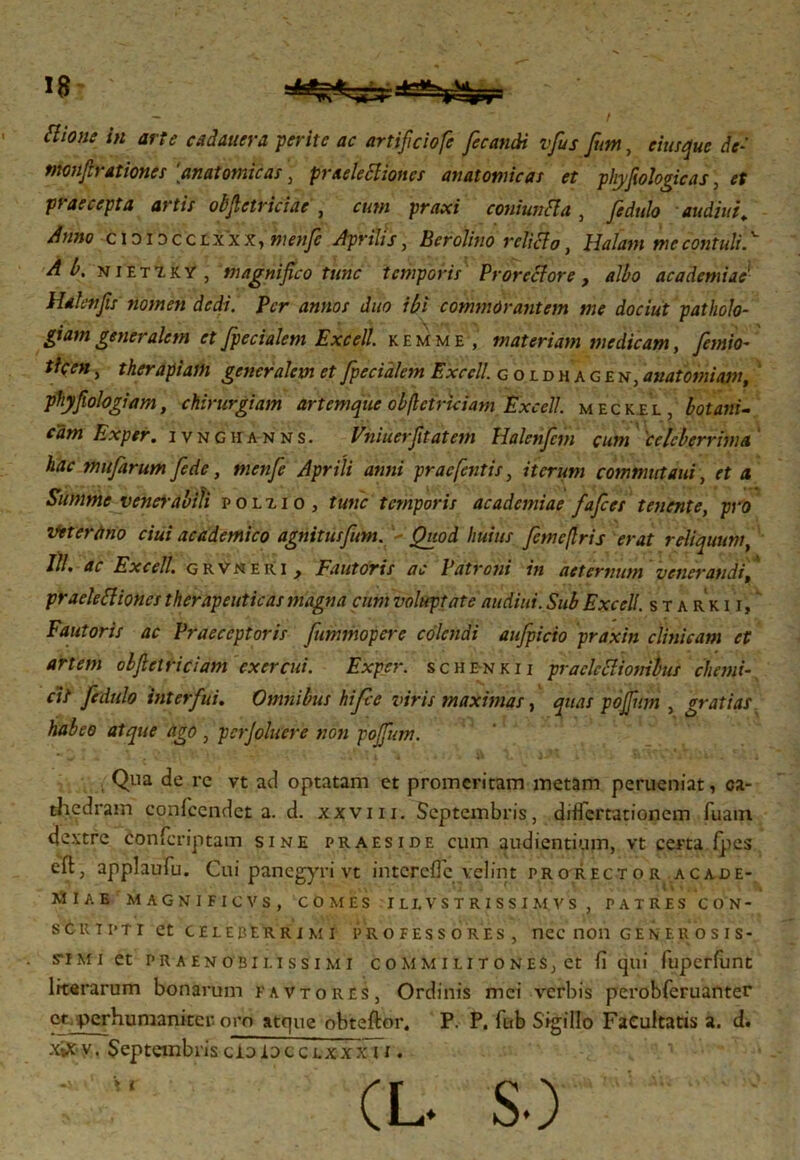 18
ctione in arte cadauera perite ac artificiose secandi vsus sum, eiusque de-
monstrationes anatomicas, praelectiones anatomicas et physiologicas, et
praecepta artis obstetriciae, cum praxi coniuncta, sedulo audiui.
Anno CIƆIƆCCLXXX, mense Aprilis, Berolino relicto, Halam me contuli.
A b. NIETZKY, magnifico tunc temporis Prorectore, albo academiae
Halensis nomen dedi. Per annos duo ibi commorantem me dociut patholo-
giam generalem et specialem Excell. KEMME, materiam medicam, semio-
ticen, therapiam generalem et specialem Excell. GOLDHAGEN, anatomiam,
physiologiam, chirurgiam artemque obstetriciam Excell. MECKEL, botani-
cam Exper. IVNGHANNS. Vniuersitatem Halensem cum celeberrima
hac musarum sede, mense Aprili anni praesentis, iterum commutaui, et a
Summe venerabili POLZIO, tunc temporis academiae fasces tenente, pro
veterano ciui academico agnitus sum. Quod huius semestris erat reliquum,
Ill. ac Excell. GRVNERI, Fautoris ac Patroni in aeternum venerandi,
praelectiones therapeuticas magna cum voluptate audiui. Sub Excell. STARKII,
Fautoris ac Praeceptoris summopere colendi auspicio praxin clinicam et
artem obstetriciam exercui. Exper. SCHENKII praelectionibus chemi-
cis sedulo interfui. Omnibus hisce viris maximas, quas possum, gratias
habeo atque ago, persoluere non possum.
Qua de re vt ad optatam et promeritam metam perueniat, ca-
thedram conscendet a. d. XXVIII. Septembris, dissertationem suam
dextre conscriptam SINE PRAESIDE cum audientium, vt certa spes
est, applausu. Cui panegyri vt interesse velint PRORECTOR ACADE-
MIAE MAGNIFICVS, COMES ILLVSTRISSIMVS, PATRES CON-
SCRIPTI et CELEBERRIMI PROFESSORES, nec non GENEROSIS-
SIMI et PRAENOBILISSIMI COMMILITONES, et si qui supersunt
literarum bonarum FAVTORES, Ordinis mei verbis perobseruanter
et perhumaniter oro atque obtestor. P. P. sub Sigillo Facultatis a. d.
XXV. Septembris CIƆIƆCCLXXXII.
(L. S.)